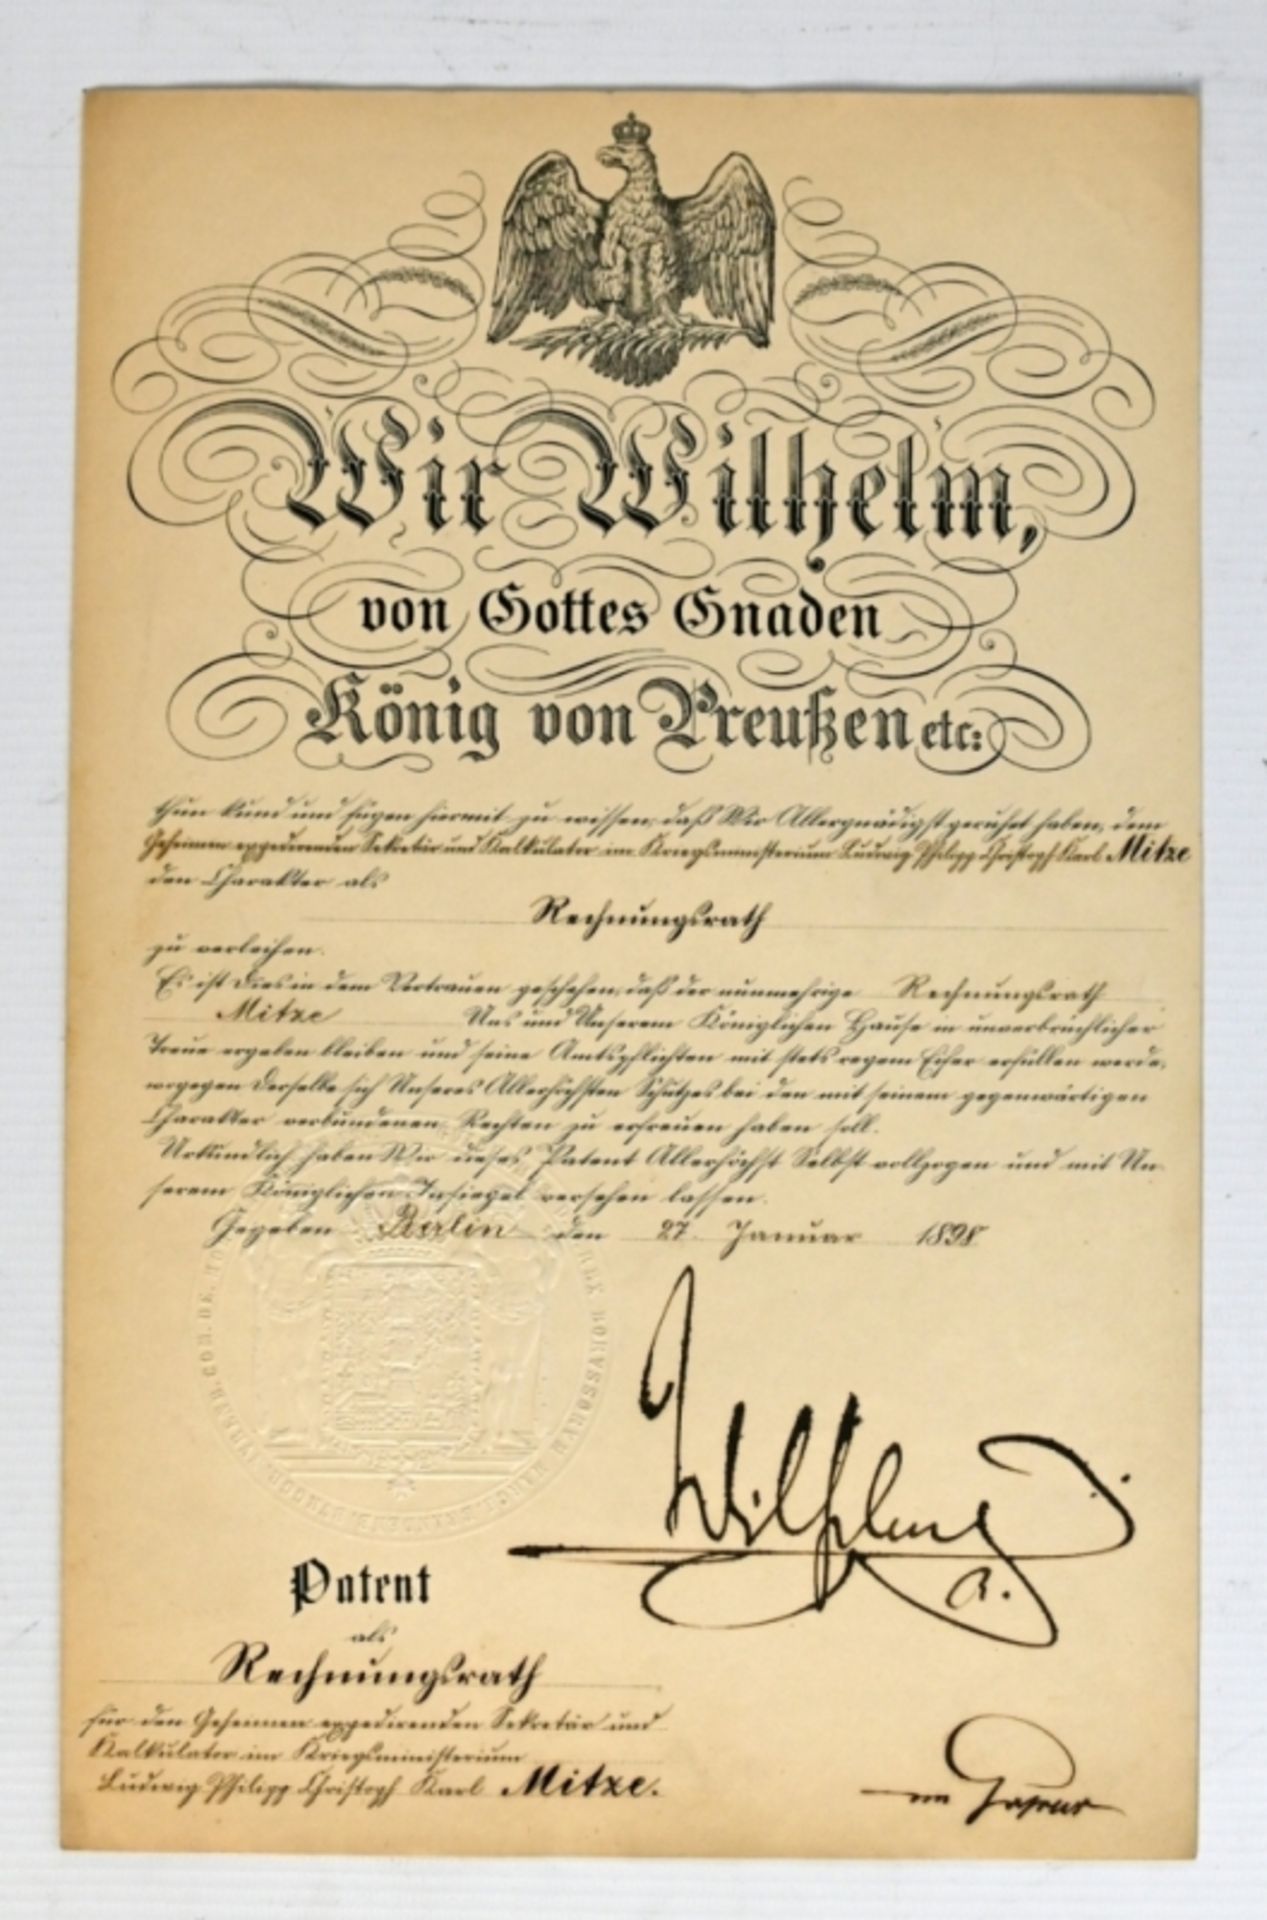 Wir Wilhelm,
von Gottes Gnaden
König von Preußen etc:
thun kund und fügen hiermit zu wissen, daß Wir Allergnädigst geruht haben, dem
Geheimen expedirenden Sekretär und Kalkulator im Kriegsministerium Ludwig Philipp Christoph Karl Mitze
den Charakter als
Rechnungsrath
zu verleihen.
Es ist dies in dem Vertrauen geschehen, daß der nunmehrige Rechnungsrath
Mitze Uns und Unserem Königlichen Hause in unverbrüchlicher
Treue ergeben bleiben und seine Amtspflichten mit stets regem Eifer erfüllen werde,
wogegen derselbe sich Unseres Allerhöchsten Schutzes bei den mit seinem gegenwärtigen
Charakter verbundenen Rechten zu erfreuen haben soll.
Urkundlich haben Wir dieses Patent Allerhöchst Selbst vollzogen und mit Un-
serem Königlichen Insiegel versehen lassen.
Gegeben Berlin den 27. Januar 1898
Wilhelm
R.
Patent
als
Rechnungsrath
für den Geheimen expedirenden Sekretär und
Kalkulator im Kriegsministerium
Ludwig Philipp Christoph Karl Mitze.